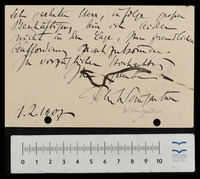 Sehr geehrter Herr, infolge grosser
Beschäftigung bin ich leider
nicht in der Lage, Ihrer freundlichen
Aufforderung nachzukommen.
In vorzüglicher Hochachtung
1.2.1907
0 1 2 3 4 5 6 7 8 9 10